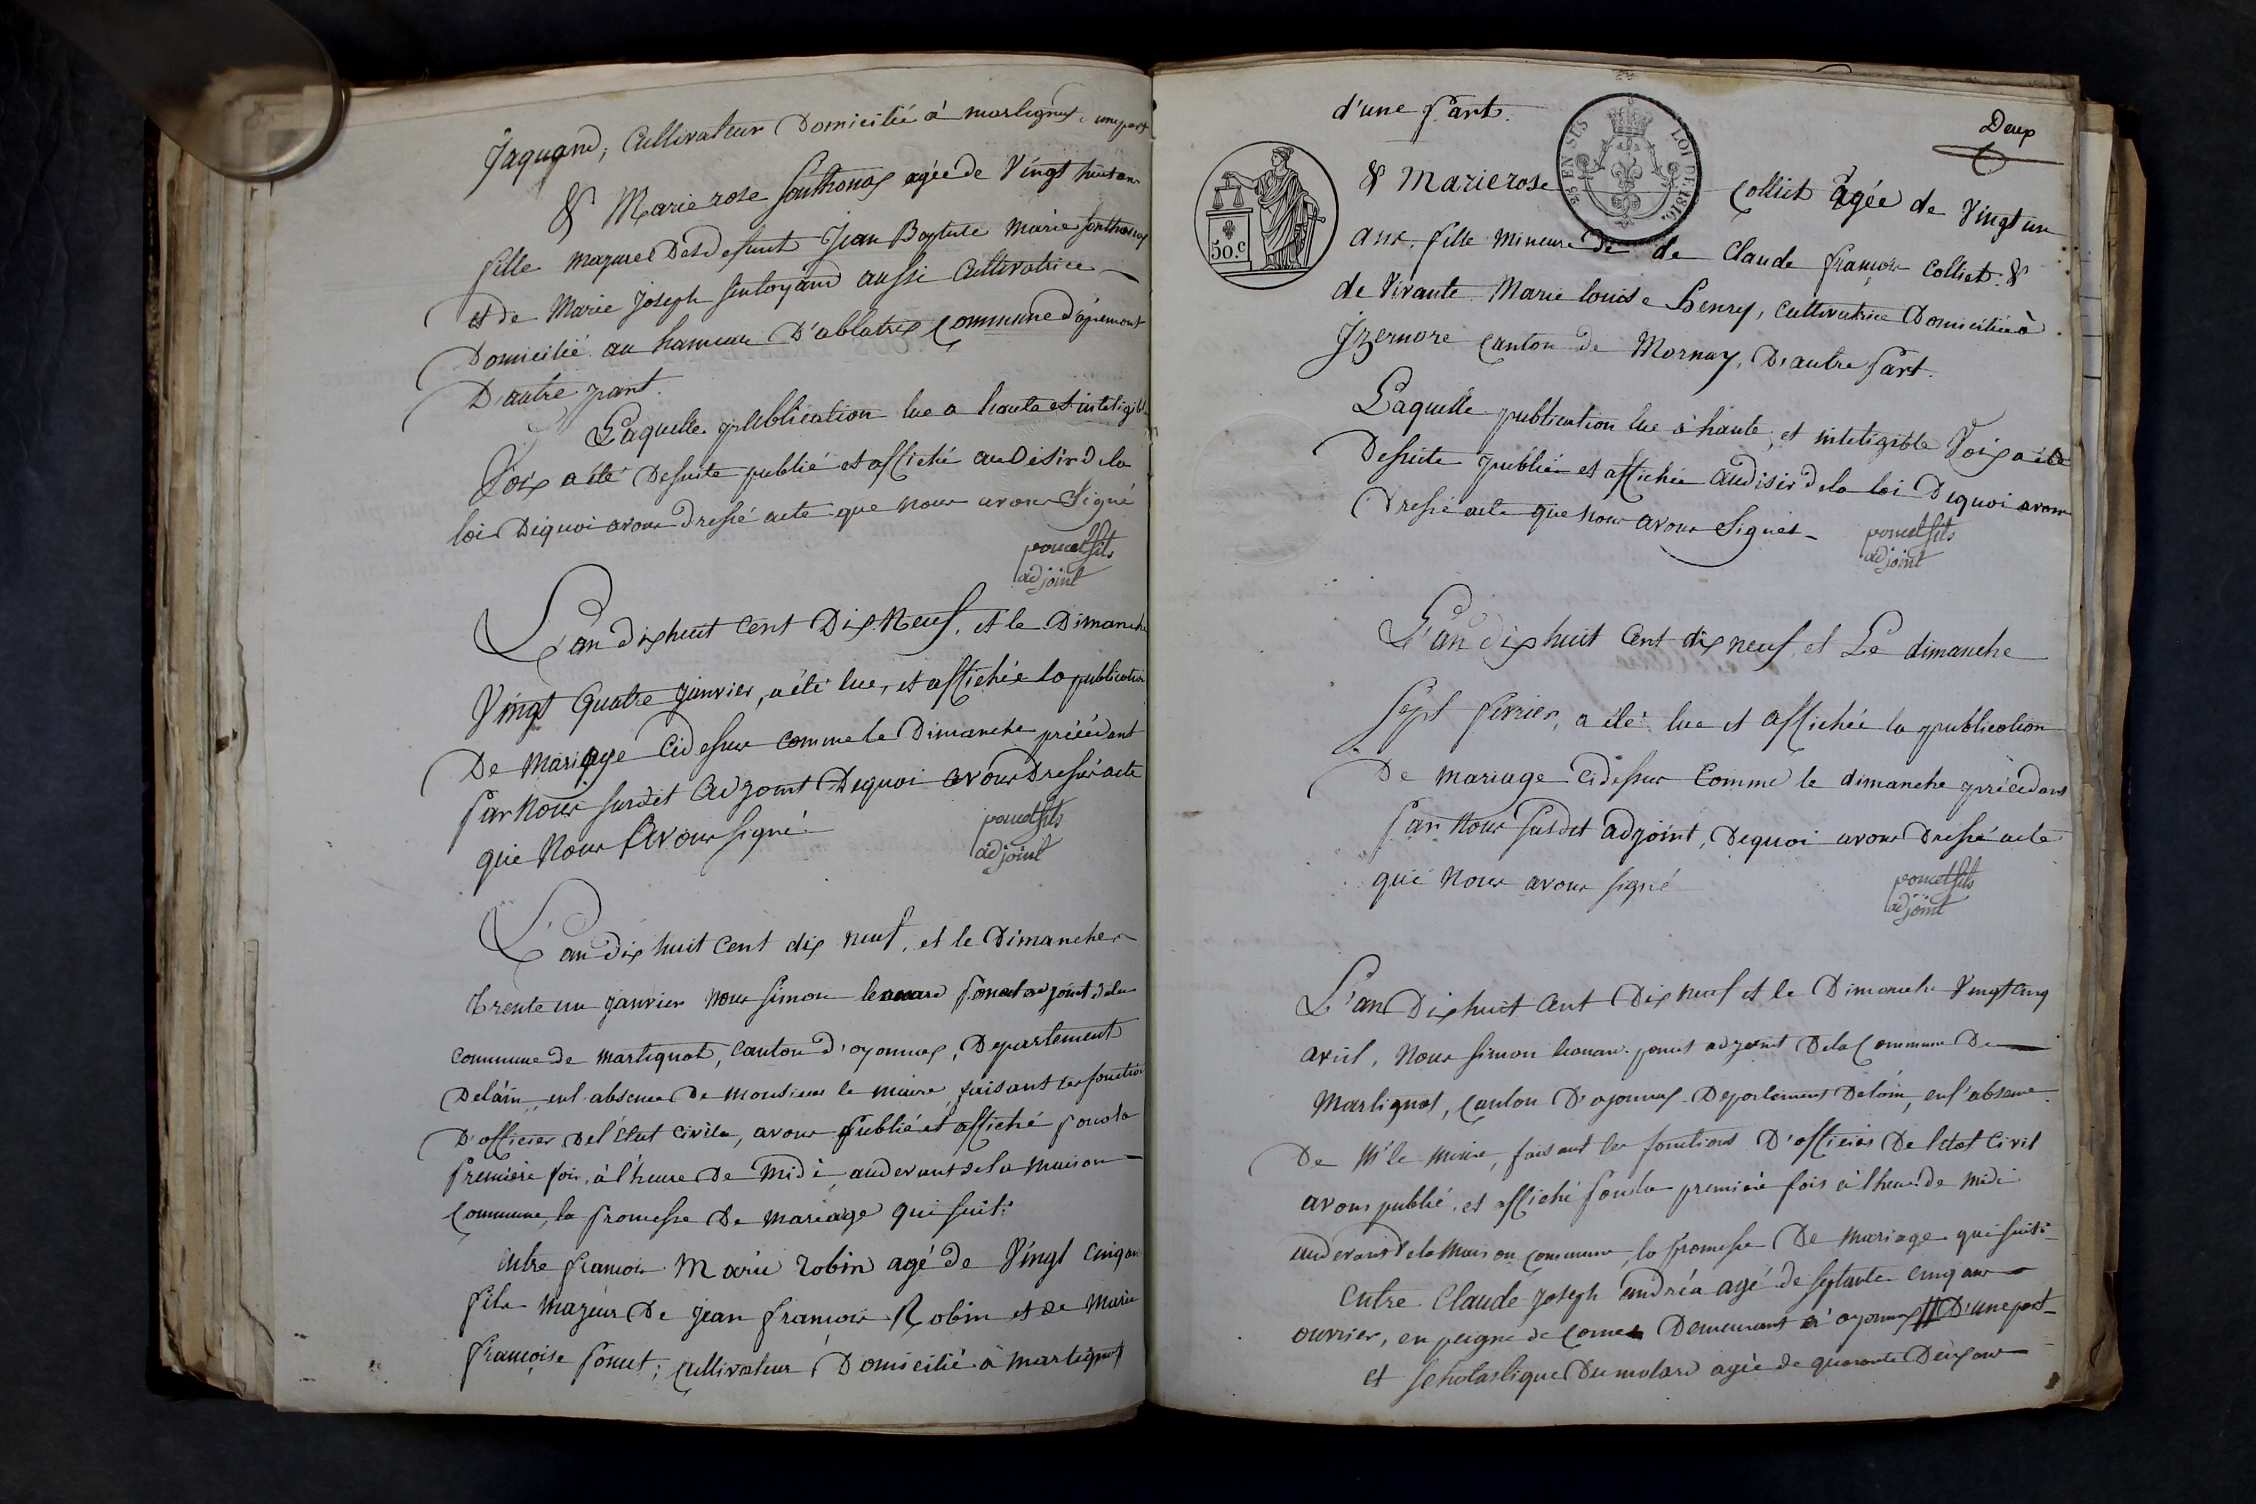 Jaquand, Cultivateur Domicilié à martignat, une part
& Marie rose Sonthonax agée de Vingt huit ans
fille majeure Des defunt Jean Baptiste Marie Sonthonax
et de Marie Joseph aussi Cultivatrice
Domicilié au hameau D'ablatrix Commune d'apremont
D'autre part.
Laquelle publication lue a haute et inteligible
Voix a été Desuite publié et affiché au Désir de la
loi Dequoi avons dressé acte que nous avons Signé
poncet fils
adjoint
L'an dix huit Cent Dix Neuf, et le Dimanche
Vingt Quatre Janvier, a été lue, et affichée la publication
De Mariage Cidessus comme le Dimanche précédant
Par Nous susdit Adjoint Dequoi avons Dressé acte
que Nous Avons signé
poncet fils
adjoint
L'an dix huit Cent dix neuf, et le Dimanche
Trente un Janvier nous Simon Poncet adjoint dela
commune de martignat, Canton d'oyonnax, Departement
Delain, en l'absence De monsieur le maire, faisant les fonctions
D'officier Del'état Civile, avons Publié et affiché pour la
Première fois, à l'heure De midi, audevant de la maison
Commune, la Promesse De mariage qui suit:
Entre françois Marie robin agé de Vingt Cinq ans
fils majeur De Jean françois Robin et de Marie
françoise Ponut; Cultivateur Domicilié à Martignat
d'une Part.
Deux
25 EN SUS
LOI DE 1816.
50.c
& Marie rose Colliet Agée de Vingt un
ans, fille mineure de de Claude françois Colliet &
de Vivante Marie louise Henry, Cultivatrice Domiciliée à
Izernore Canton de Mornay, D'autre Part.
Laquelle publication lue à haute, et inteligible Voix a été
Desuite publiée et affichée au désir dela loi Dequoi avons
Dressé acte que Nous avons Signés
poncet fils
adjoint
L'an dix huit Cent dix neuf, et Le dimanche
Sept fevrier, a été lue et affichée la publication
De mariage cidessus Comme le dimanche précédant
Par Nous Susdit adjoint, Dequoi avons Dressé acte
que Nous avons signé
poncet fils
adjoint
L'an Dix huit Cent Dix neuf et le Dimanche Vingt cinq
avril, Nous Simon ponut adjoint Dela Commune De
Martignat, Canton D'oyonnax Departement Delain, en l'absence
De Mr le Maire, faisant les fonctions D'officier De l'état Civil
avons publié, et affiché pour la première fois à l'heure de midi
audevant dela Maison commune, la promesse De Mariage qui suit:
Entre Claude Joseph andréa agé de Septante cinq ans
ouvrier, en peigne de Corne Demeurant à oyonnax D'une part
et Scholastique Dumolard agée de quarante Deux ans